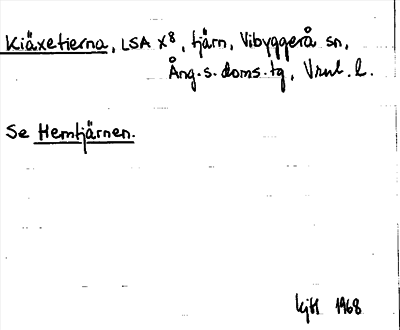 Kiäxetierna, LSA X⁸, tjärn, Vibyggerå sn,
Ång.s.doms.tg, Vrnl. l.
Se Hemtjärnen.
KjH 1968